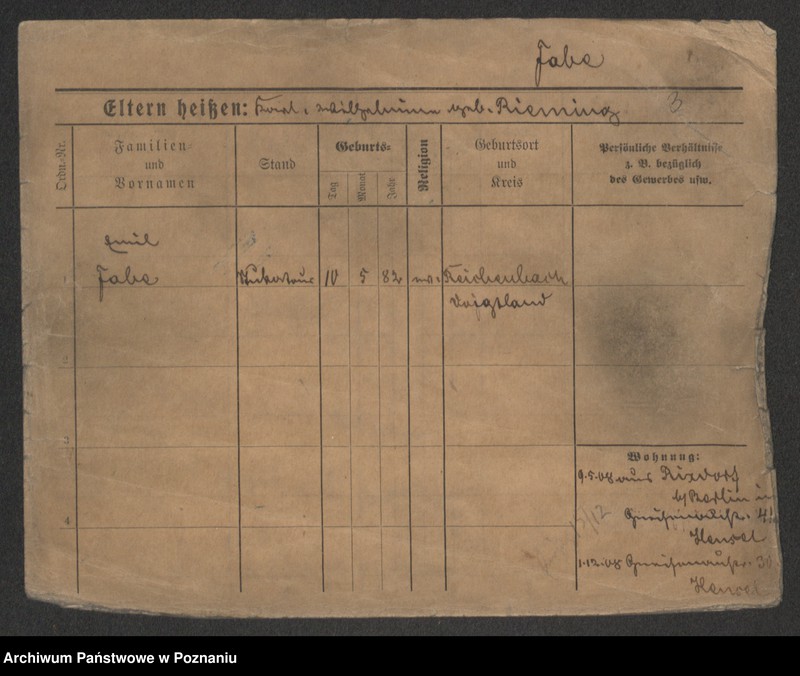 Jabe
Eltern heißen: Karl, Wilhelmine geb. Rieming 3
Ordn.-Nr.
Familien
und
Vornamen
Stand
Geburts-
Tag
Monat
Jahr
Religion
Geburtsort
und
Kreis
Persönliche Verhältnisse
z. B. bezüglich
des Gewerbes usw.
Emil
1 Jabe Stukateur 10 5 82 ev. Reichenbach
Voigtland
2
3
4
Wohnung:
9.5.08 aus Rixdorf
b/Berlin in
Gneisenaustr.
Hensel
1.12.08 Gneisenaustr. 30
Hensel
Archiwum Państwowe w Poznaniu